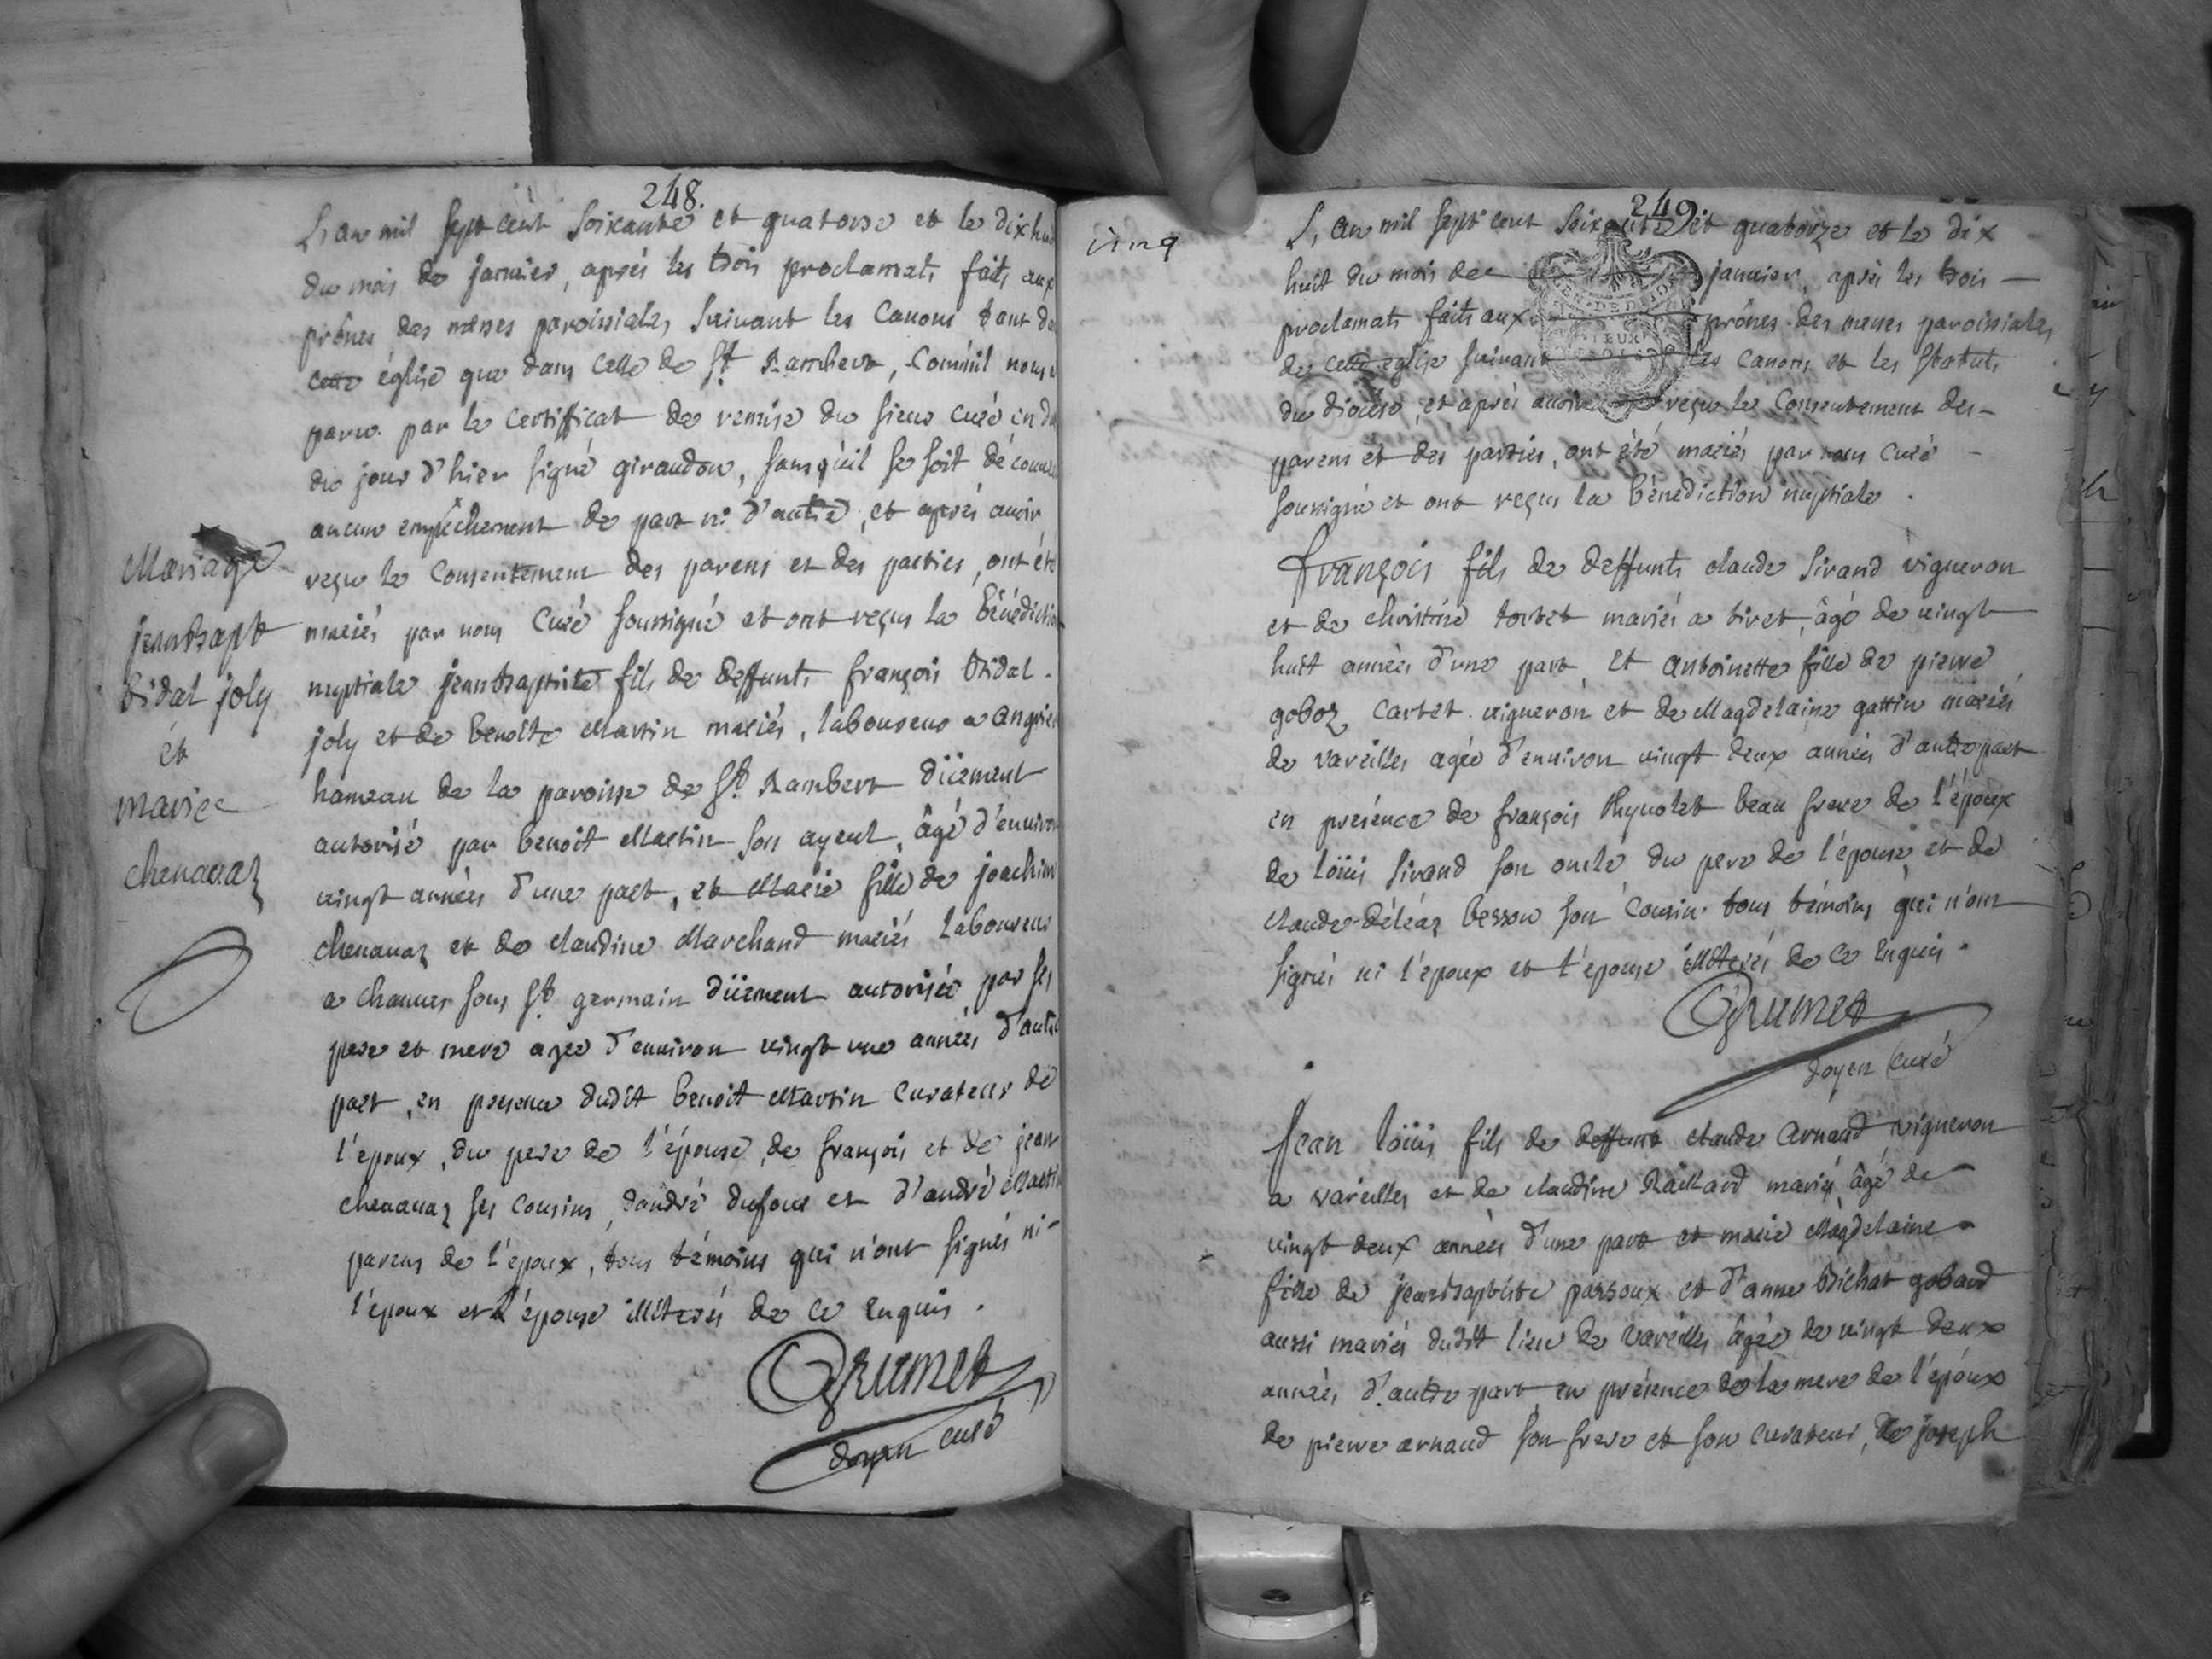 248.
L'an mil sept cent soixante et quatorse et le dix huit
du mois de janvier, aprés les trois proclamats faits aux
prônes des messes paroissiales suivant les Canons tant de
cette église que dans celle de St Rambert, Comm'il nous
paru par le Certifficat de remise du sieur Curé en
du jour d'hier signé giraudon, sans qu'il se soit découvert
aucun empêchement de part ni d'autre, et aprés avoir
reçu le Consentement des parens et des parties, ont été
mariés par nous Curé soussigné et ont reçus la bénédiction
nuptiale jeanbaptiste fils de deffunts françois tridal
joly et de benoîte Martin mariés, laboureur a angrieu
hameau de la paroisse de St Rambert düement
autorisé par benoit Martin son ayeul, âgé d'environ
vingt années d'une part, et Marie fille de joachim
chenavaz et de claudine Marchand mariés laboureur
a chauues sous St germain düement autorisée par ses
pere et mere agée d'environ vingt une années d'autre
part, en presence dudit benoit Martin Curateur de
l'époux, du pere de l'épouse, de françois et de jean
chenavaz ses Cousins, d'andré dufour et d'andré Martin
parens de l'époux, tous témoins qui n'ont signés ni
l'époux et l'épouse illiterés de ce Enquis.
Grumet
doyen curé
Mariage
jeanbapt
tridal joly
et
marie
chenavaz
249
vinq
L'an mil sept cent soixante et quatorze et le dix
huit du mois de janvier, aprés les trois
proclamats faits aux prônes des messes paroissiales
de cette eglise suivant les Canons et les Statuts
du diocése, et aprés avoir reçu le Consentement des
parens et des parties, ont été mariés par nous Curé
soussigné et ont reçus la bénédiction nuptiale.
François fils de deffunts claude Sirand vigneron
et de christine tortet mariés a tiret, âgé de vingt
huit années d'une part, Et antoinette fille de pierre
goboz Cartet vigneron et de Magdelaine gattin mariés
de vareilles agée d'environ vingt deux années d'autre part
en présence de françois beau frere de l'époux
de loüis Sirand son oncle du pere de l'épouse et de
claude déléaz besson son Cousin tous témoins qui n'ont
signés ni l'époux et l'épouse illiterés de ce Enquis.
Grumet
doyen curé
Jean loüis fils de deffunt claude Arnaud vigneron
a vareilles et de claudine Raillard mariés âgé de
vingt deux années d'une part et marie Magdelaine
fille de jeanbaptiste passoux et d'anne trichat gobard
aussi mariés dudit lieu de vareilles âgée de vingt deux
années d'autre part en présence de la mere de l'époux
de pierre arnaud son frere et son curateur, de joseph